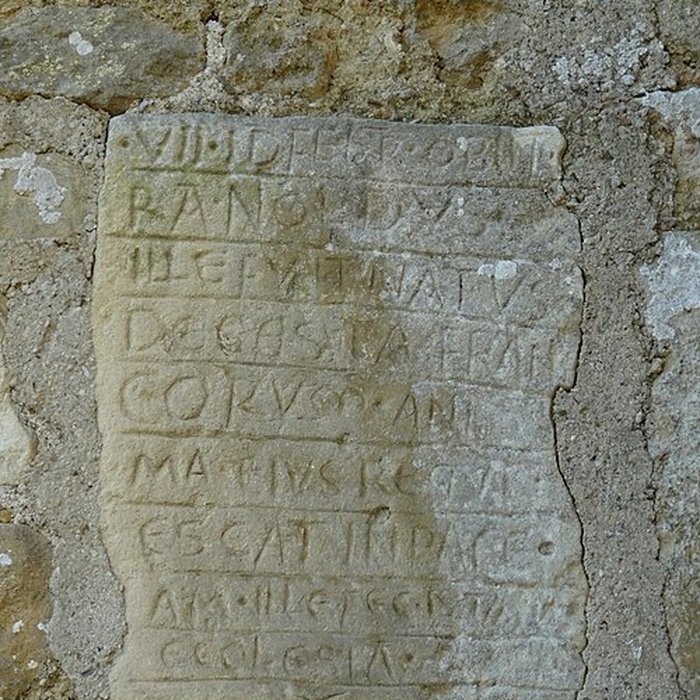 ·VII·ID FEBR·OBIIT·
RA·NOLDVS·
ILLE FVIT NATVS
DE GESTA FRAN
CORVM·ANI
MA EIVS REQVI
ESCAT IN PACE·
AM·ILLE FECIT
ECCLESIA·